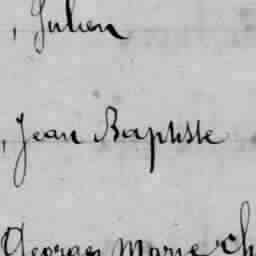 , Julien
, Jean Baptiste
Georges Marie Ch